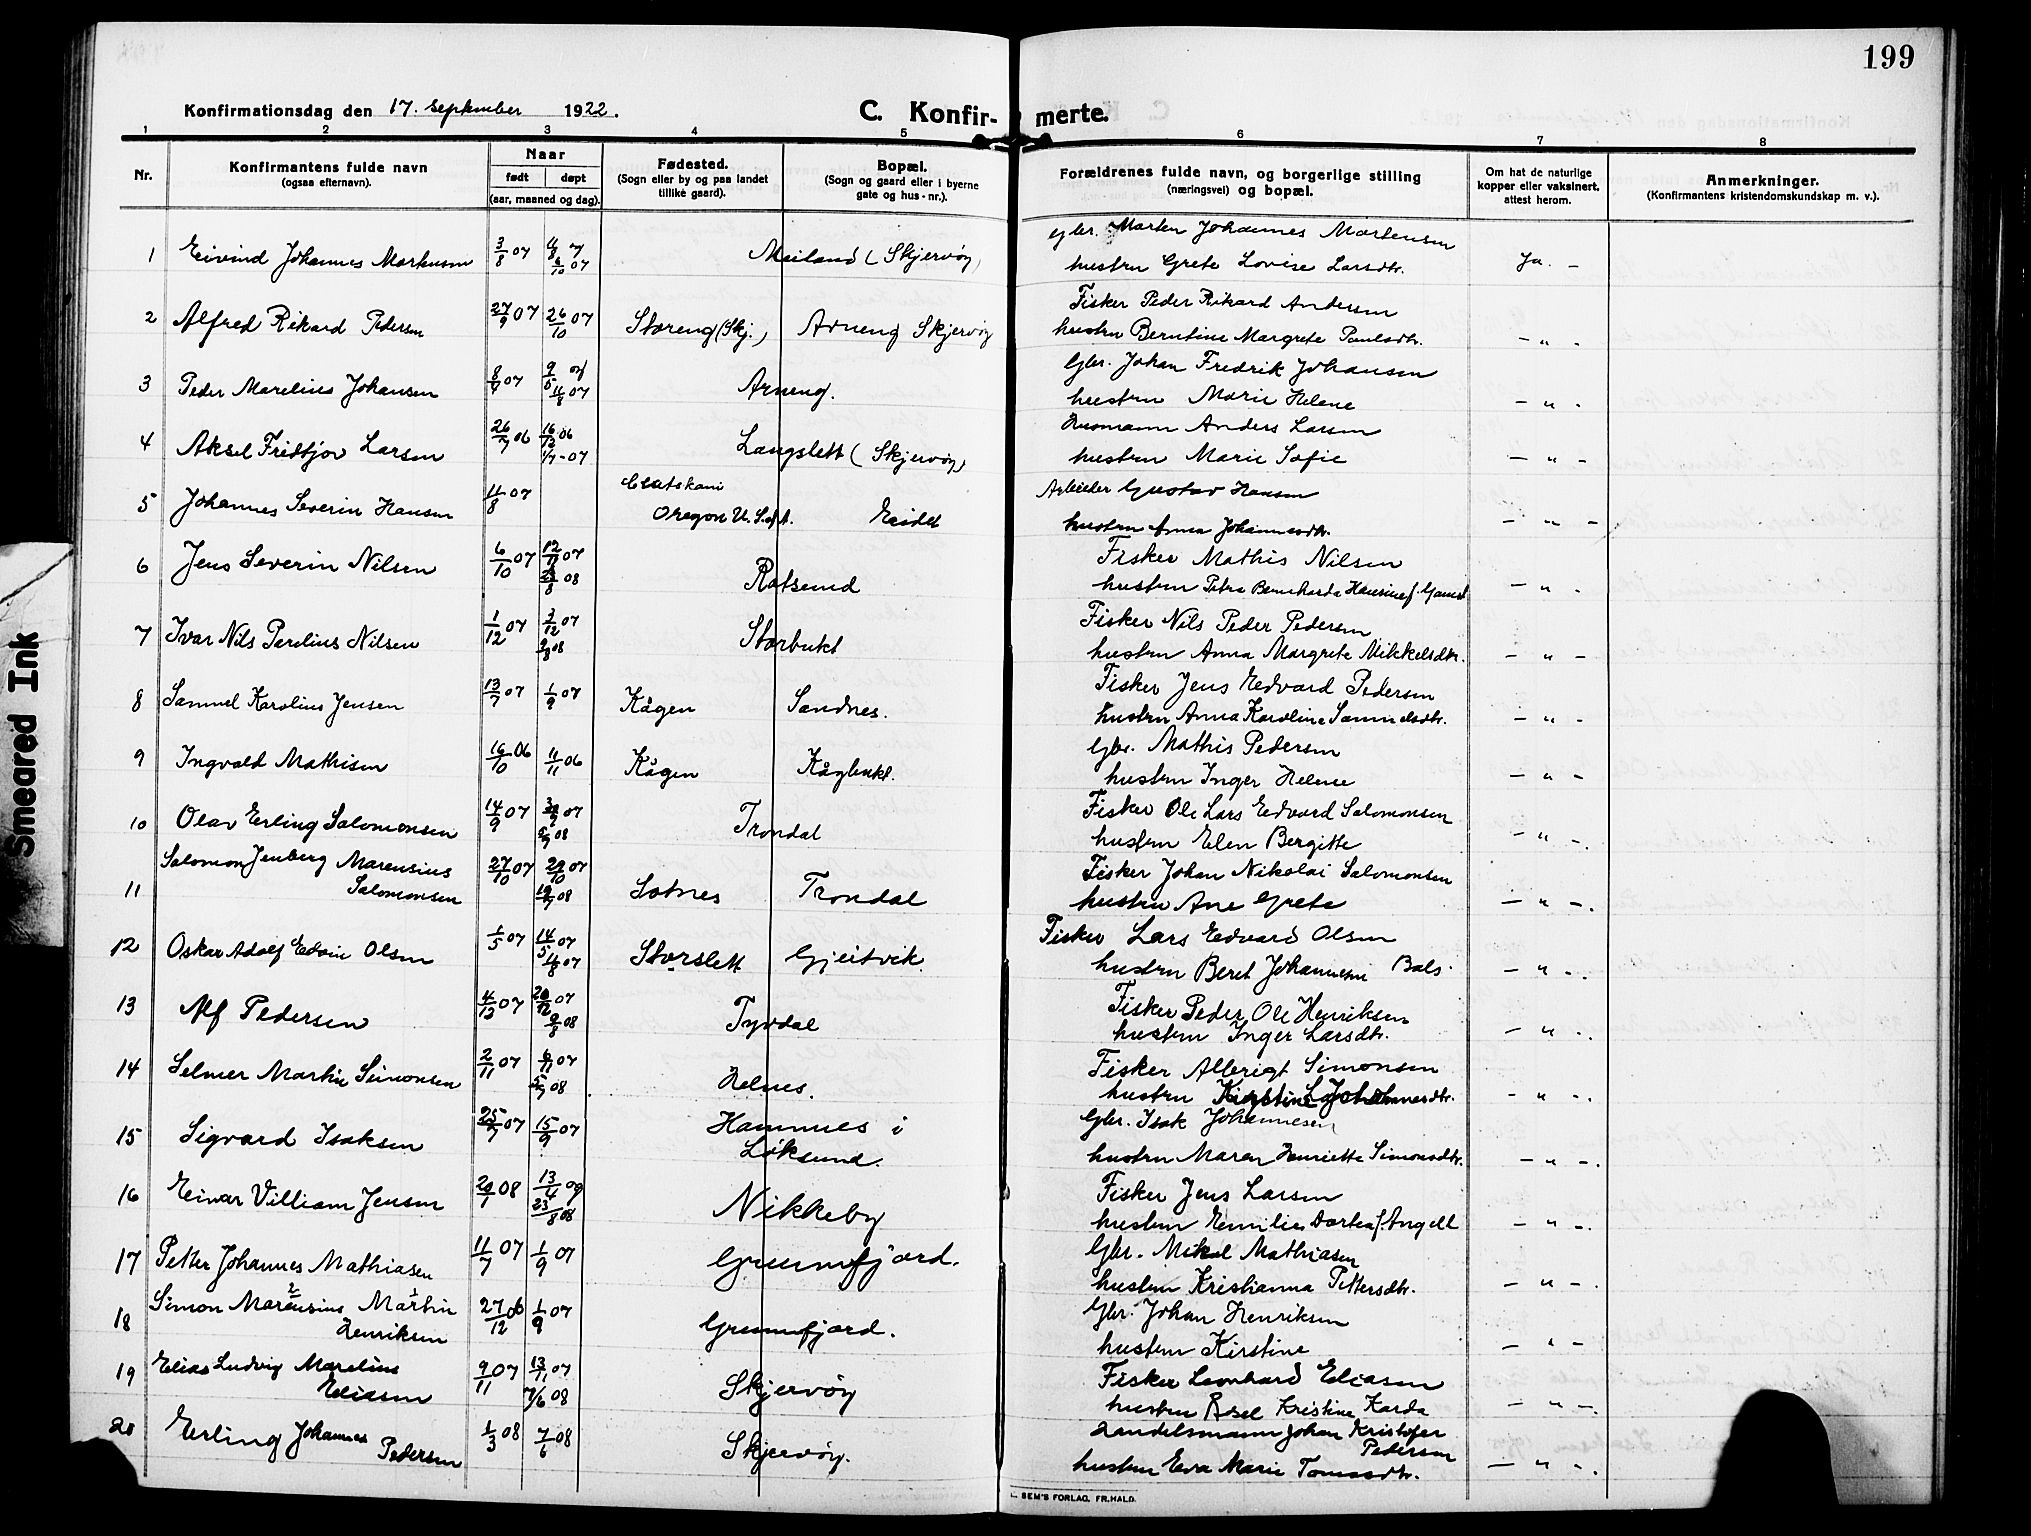 199
Konfirmationsdag den 17. September 1922.
C. Konfir- merte.
1 2 3 4 5 6 7 8
Nr.
Konfirmantens fulde navn
(ogsaa efternavn).
Naar
født døpt
(aar, maaned og dag).
Fødested.
(Sogn eller by og paa landet
tillike gaard).
Bopæl.
(Sogn og gaard eller i byerne
gate og hus-nr.).
Forældrenes fulde navn, og borgerlige stilling
(næringsvei) og bopæl.
Om hat de naturlige
kopper eller vaksinert.
attest herom.
Anmerkninger.
(Konfirmantens kristendomskundskap m. v.).
gbr. Marten Johannes Martensen
1 Eivind Johannes Martensen 3/8 07 Meiland (Skjervøy) hustru Grete Lovise Larsdtr. Ja. –
Fisker Peder Rikard Andersen
2 Alfred Rikard Pedersen 27/9 07 26/10 07 Storeng (Skj.) Arneng Skjervøy hustru Berntine Margrete Paulsdtr. – " -
Gbr. Johan Fredrik Johansen
3 Peder Marelius Johansen 11/8 07 Arneng. hustru Marie Helene – " -
Husmann Anders Larsen
4 Aksel Fridtjov Larsen 26/7 06 16/12 06 1/7-07 Langslett (Skjervøy) hustru Marie Sofie – " –
Clatskani Arbeider Gustav Hansen
5 Johannes Severin Hansen 11/8 07 Oregon U.S.of A. Eidet hustru Anna Johannesdtr. – " –
Fisker Mathis Nilsen
6 Jens Severin Nilsen 6/10 07 Rotsund hustru Petra Bernharda Hansine f.
Fisker Nils Peder Pedersen
7 Ivar Nils Perelius Nilsen 1/12 07 3/12 07 9/8 08 Storbukt hustru Anna Margrete Mikkelsdtr. – " –
Fisker Jens Edvard Pedersen
8 Samuel Karolius Jensen 13/7 07 1/9 07 Kågen Sandnes. hustru Anna Karoline Samuelsdtr. – " –
Gbr. Mathis Pedersen
9 Ingvald Mathisen 16/10 06 4/11 06 Kågen Kågbukt. hustru Inger Helene – " –
Fisker Ole Lars Edvard Salomonsen
10 Olav Erling Salomonsen 14/9 07 Trondal hustru Elen Bergitte – " -.
Salomon Jenberg Marensius Fisker Johan Nikolai Salomonsen
11 Salomonsen 27/10 07 29/10 07 Sotnes Trondal hustru Ane Grete – " –.
Fisker Lars Edvard Olsen
12 Oskar Adolf Edvin Olsen 1/5 07 14/5 07 11/8 07 Storslett Gjeitvik. hustru Beret Johannesen Bals. – " –.
Fisker Peder Ole Henriksen
13 Alf Pedersen 4/12 07 9/8 08 Tyvdal hustru Inger Larsdtr. – " -.
Fisker Albrigt Simonsen
14 Selmer Martin Simonsen 2/11 07 Helnes. hustru - " -.
Gbr. Isak Johannesen
15 Sigvard Isaksen 25/7 07 15/9 07 Hamnes i
Løksund. hustru Maren Henriette Simonsdtr. – " –.
Fisker Jens Larsen
16 Einar Villiam Jensen 20/1 08 23/8 08 Nikkeby hustru Emilie Dortea f Angell – " –.
Gbr. Mikal Mathiasen
17 Petter Johannes Mathiasen 11/7 07 1/9 07 Grunnfjord. hustru Kristianna Pettersdtr. – " –.
Simon Marensius Martin Gbr. Johan Henriksen
18 Henriksen 27/12 06 1/9 07 Grunnfjord. hustru Kirstine – " –
Elias Ludvig Marelius Fisker Leonhard Eliasen
19 Eliasen 9/11 07 13/11 07 7/6 08 Skjervøy hustru Kristine Karda – " –.
Handelsmann Johan Kristofer
20 Erling Johannes Pedersen
Pedersen 1/3 08 7/6 08 Skjervøy. hustru Eva Marie Tomasdtr. – " –.
SEM'S FORLAG, FR.HALD.
Smeared Ink